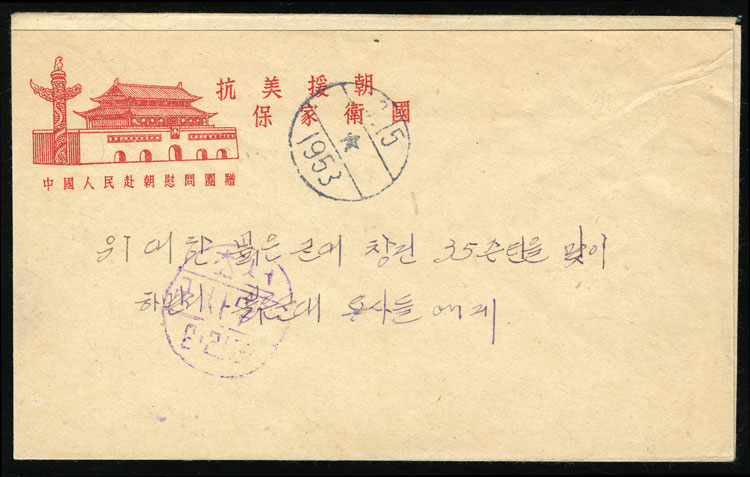 抗美援朝
保家衛國
中國人民赴朝慰問團贈
15
1953
위대한 붉은 군대 창건 35주년을 맞이
하면서 붉은군대 용사들에게